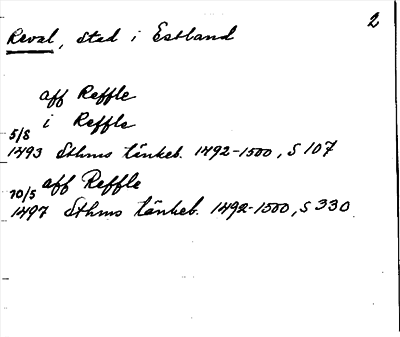 2
Reval, stad i Estland
aff Reffle
i Reffle
5/8
1493 Sthms tänkeb. 1492-1500, S 107
10/5 aff Reffle
1497 Sthms tänkeb. 1492-1500, S 330